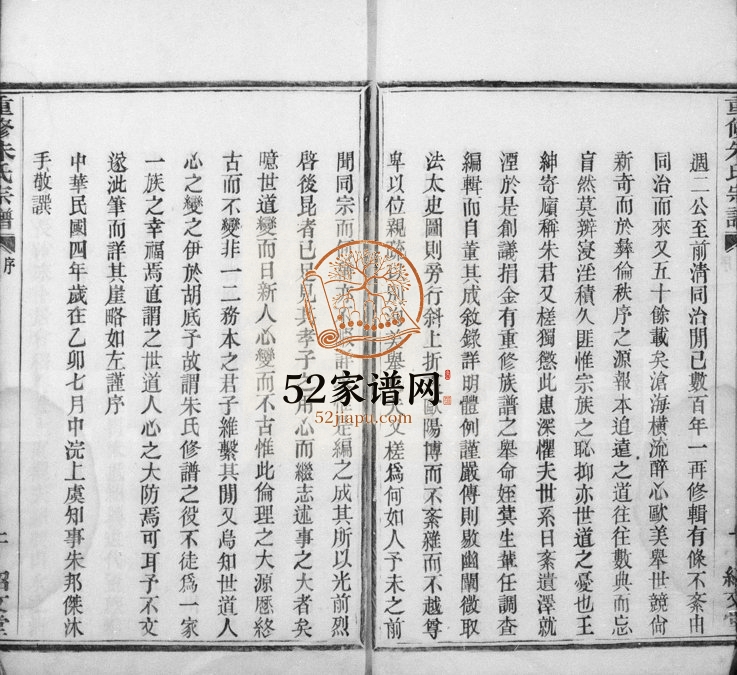 週二公至前清同治閒已數百年一再修輯有條不紊由
同治而來又五十餘載矣滄海橫流醉心歐美舉世競尙
新奇而於彝倫秩序之源報本追遠之道往往數典而忘
盲然莫辧寖淫積久匪惟宗族之恥抑亦世道之憂也王
紳寄廎稱朱君又槎獨懲此患深懼夫世系日紊遺澤就
湮於是創議捐金有重修族譜之舉命姪蓂生輩任調查
編輯而自董其成敘錄詳明體例謹嚴傳則敭幽闡微取
法太史圖則旁行斜上折 歐陽博而不紊雜而不越尊
卑以位親疏 舉 又槎爲何如人予未之前
聞同宗而 是編之成其所以光前烈
啓後昆者已足 其孝子 用心而繼志述事之大者矣
噫世道變而日新人心變而不古惟此倫理之大源應終
古而不變非一二務本之君子維繫其閒又烏知世道人
心之變之伊於胡底予故謂朱氏修譜之役不徒爲一家
一族之幸福焉直謂之世道人心之大防焉可耳予不文
遂泚筆而詳其崖略如左謹序
中華民國四年歲在乙卯七月中浣上虞知事朱邦傑沐
手敬譔
重修朱氏宗譜
序
重修朱氏宗譜
序
52家谱网
52jiapu.com